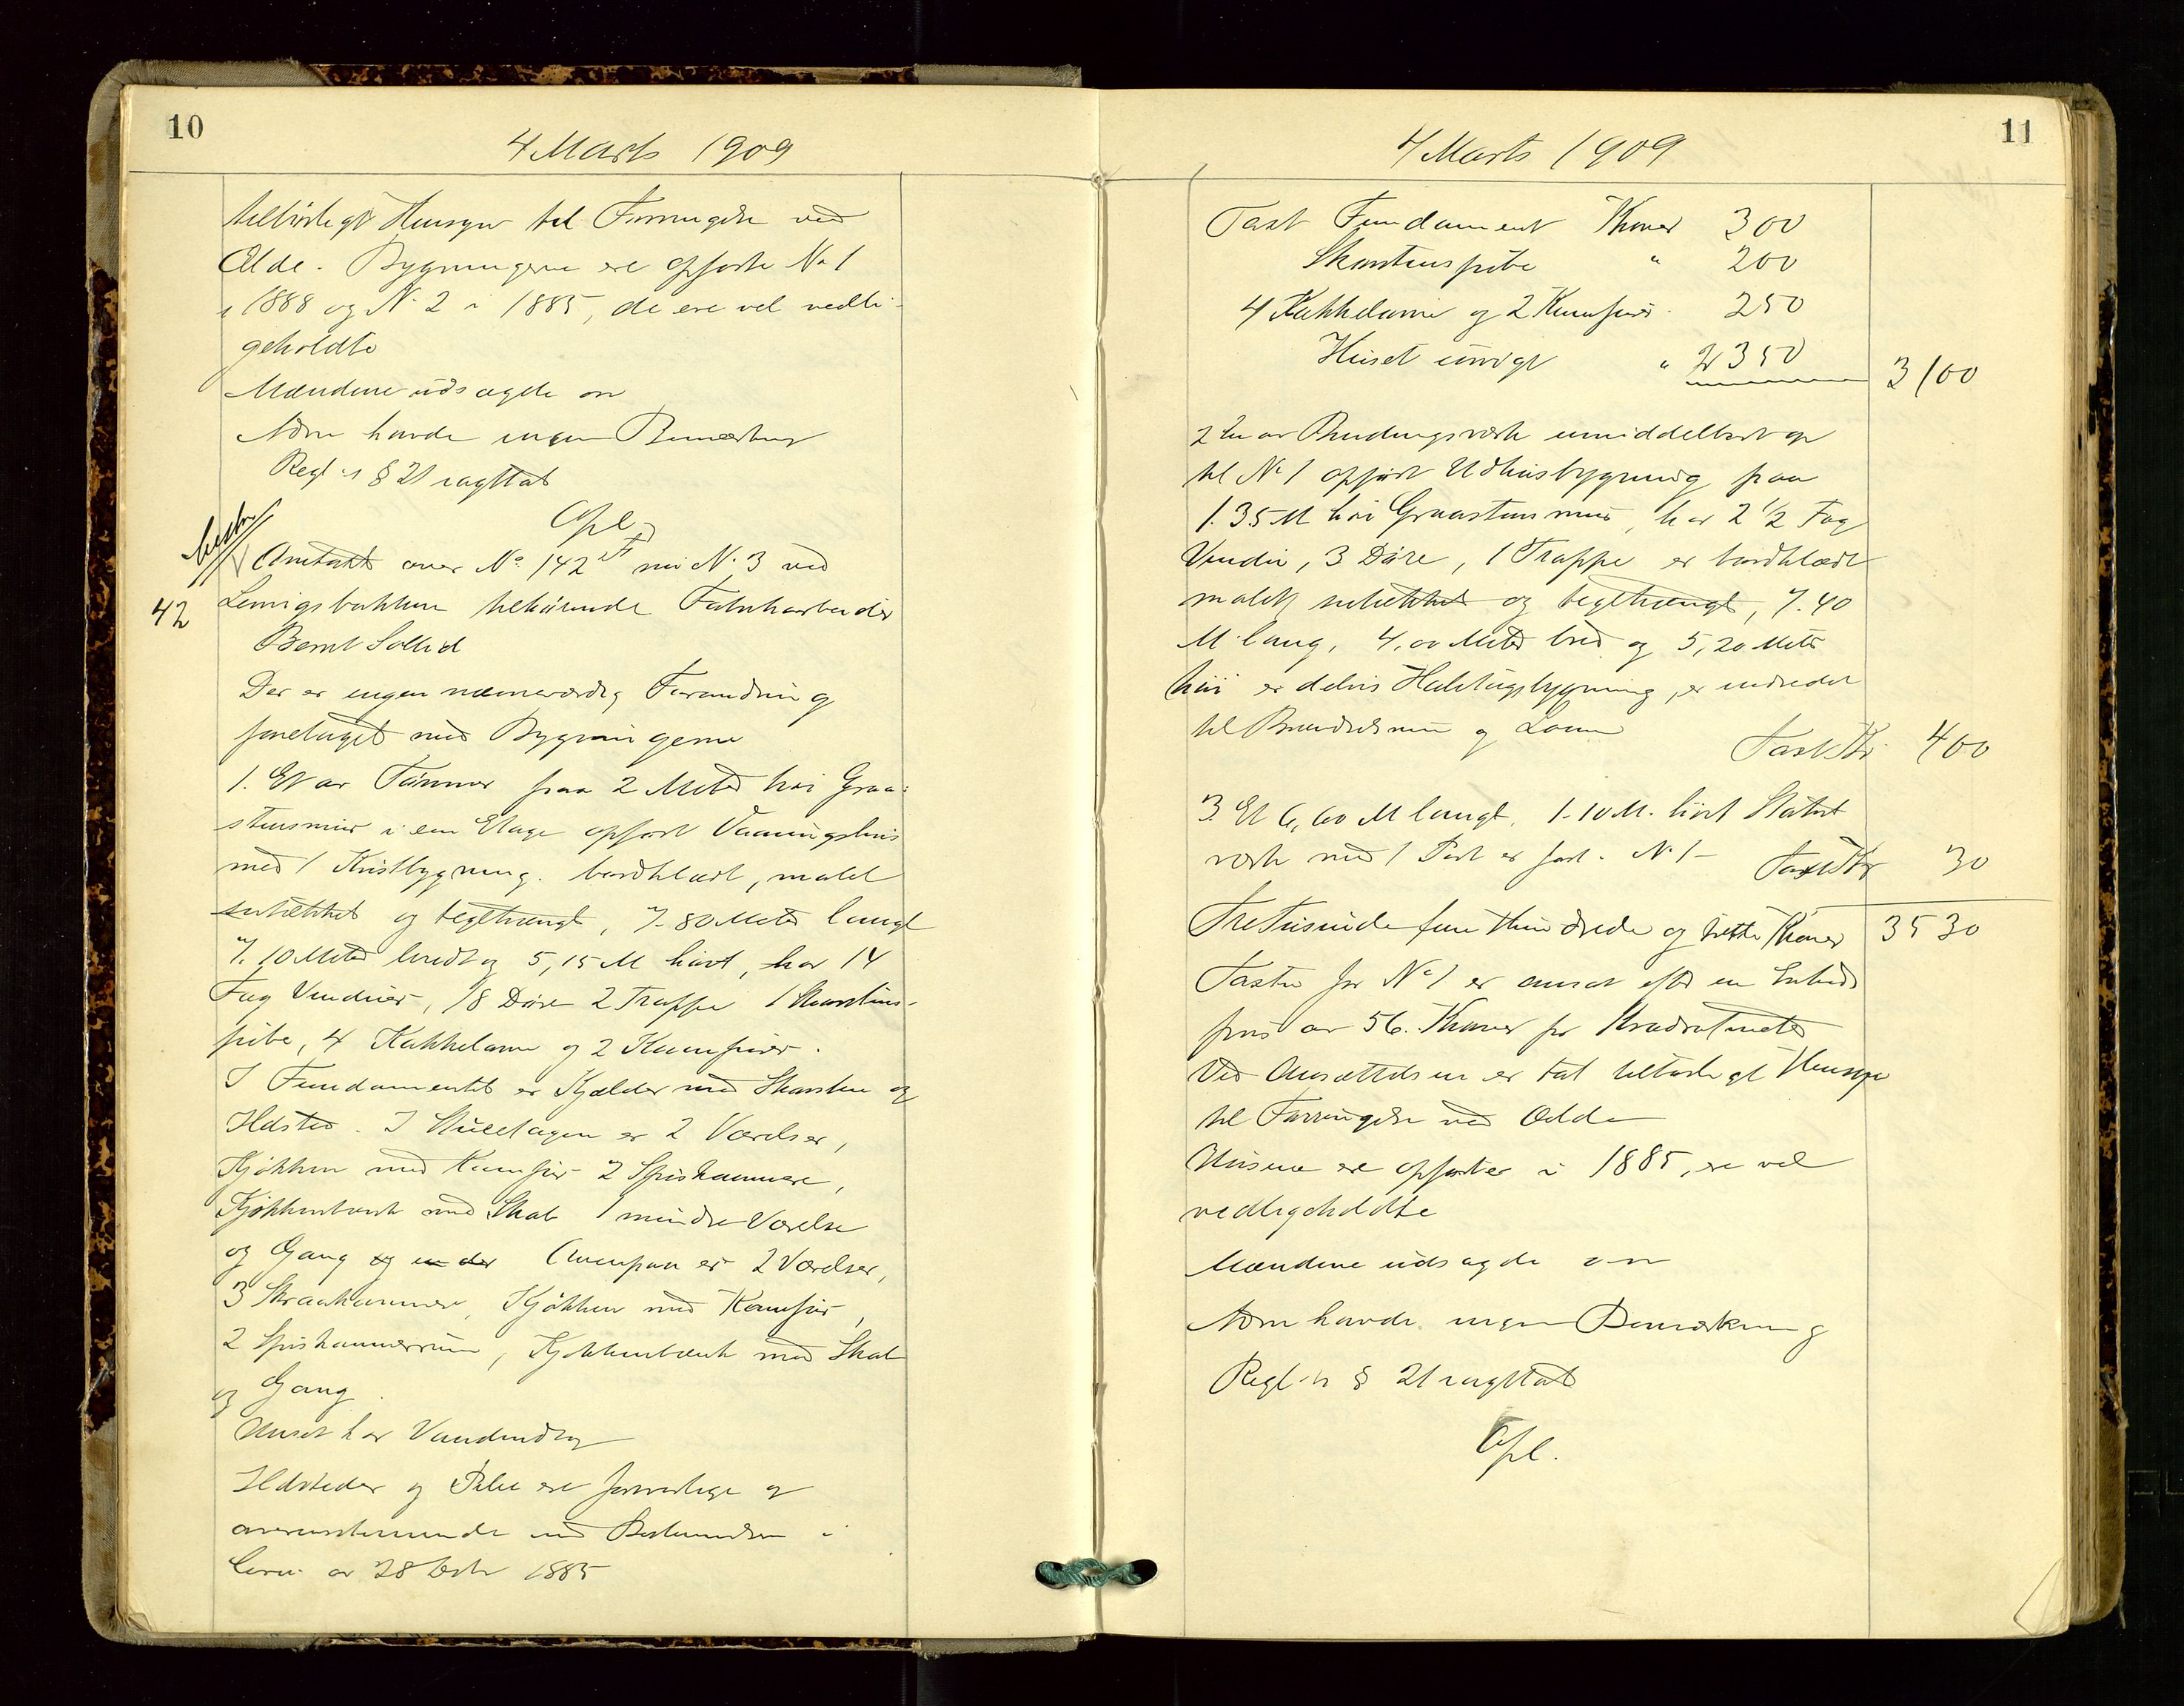 10
4 Marts 1909
tilbørligt Hensyn til Forringelse ved
Ælde. Bygningerne ere opførte No 1
i 1888 og No 2 i 1885, de ere vel vedli-
geholdte
Mændene udsagde en
Adm havde ingen Bemærkning
Regl. § 21 iagttat
Opl
Omtaxt over No. 142 nu No. 3 ved
42
tilhørende Fabrikarbeider
Bernt Sollid
Der er ingen nævneværdig Forandring
foretaget med Bygningerne
1. Et av Tømmer paa 2 Meter høi Graa-
stensmur i een Etage opført Vaaningshus
med 1 Kvistbygning. bordklædt, malet
og tegltængt, 7.80 Meter langt
7.10 Meter bredt og 5,15 M høit, har 14
Fag Vinduer, 18 Døre 2 Trapper 1 Skorstens-
pibe, 4 Kakkelovne og 2 Komfurer.
I Fundamentet er Kjelder med Skorsten og
Ildsted. I Stueetagen er 2 Værelser,
Kjøkken med Komfur 2 Spiskammere,
Kjøkkenbænk med Skab 1 mindre Værelse
og Gang og Ovenpaa er 2 Værelser,
3 Skraakammere, Kjøkken med Komfur,
2 Spiskammerrum, Kjøkkenbænk med Skab
og Gang.
Huset har Vandindlæg
Ildsteder og Piber ere forsvarlige og
overensstemmende med Bestemmelsen i
av 28 1885
11
4 Marts 1909
Taxt Fundament Kroner 300
Skorstenspibe " 200
4 Kakkelovne og 2 Komfurer 250
Huset øvrigt " 2350
3100
2 En av Bindingsværk umiddelbart op
til No 1 opført Udhusbygning paa
1.35 M høi Graastensmur, har 2 1/2 Fag
Vinduer, 3 Døre, 1 Trappe er bordklædt
malet og tegltængt, 7.40
M lang, 4,00 Meter bred og 5,20 Meter
høi er delvis Halvtagsbygning, er indredet
til Brændselsrum og Loun
Taxt Kr. 400
3. Et 6,60 M langt, 1.10 M. høit Stakit
værk med 1 Port er No 1 -
Taxt Kr 30
Tretusinde fem Hundrede og tretti Kroner 3530
Taxten for No 1 er ansat efter en Enheds
pris av 56. Kroner pr Kvadratmeter
Ved Ansættelsen er tat tilbørligt Hensyn
til Forringelse ved Ælde
Husene ere opførte i 1885, ere vel
vedligeholdte
Mændene udsagde en
Adm havde ingen Bemærkning
Regl. § 21 iagttat
Opl.